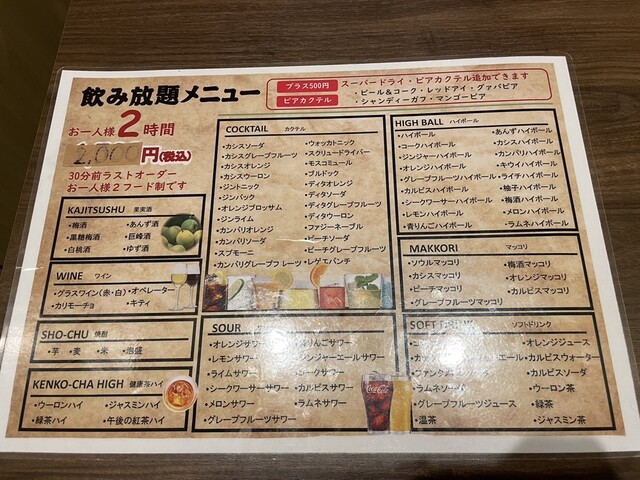 飲み放題メニュー
お一人様2時間
2,000円(税込)
30分前ラストオーダー
お一人様2フード制です
プラス500円
スーパードライ・ビアカクテル追加できます
ビアカクテル
・ビール&コーク・レッドアイ・グァバビア
・シャンディーガフ・マンゴービア
KAJITSUSHU 果実酒
・梅酒 ・あんず酒
・黒糖梅酒 ・巨峰酒
・白桃酒 ・ゆず酒
WINE ワイン
・グラスワイン(赤・白) ・オペレーター
・カリモーチョ ・キティ
SHO-CHU 焼酎
・芋 ・麦 ・米 ・泡盛
KENKO-CHA HIGH 健康茶ハイ
・ウーロンハイ ・ジャスミンハイ
・緑茶ハイ ・午後の紅茶ハイ
COCKTAIL カクテル
・カシスソーダ ・ウォッカトニック
・カシスグレープフルーツ ・スクリュードライバー
・カシスオレンジ ・モスコミュール
・カシスウーロン ・ブルドック
・ジントニック ・ディタオレンジ
・ジンバック ・ディタソーダ
・オレンジブロッサム ・ディタグレープフルーツ
・ジンライム ・ディタウーロン
・カンパリオレンジ ・ファジーネーブル
・カンパリソーダ ・ピーチソーダ
・スプモーニ ・ピーチグレープフルーツ
・カンパリグレープフルーツ ・レゲエパンチ
SOUR
・オレンジサワー ・青りんごサワー
・レモンサワー ・ジンジャーエールサワー
・ライムサワー ・コークサワー
・シークワーサーサワー ・カルピスサワー
・メロンサワー ・ラムネサワー
・グレープフルーツサワー
HIGH BALL ハイボール
・ハイボール ・あんずハイボール
・コークハイボール ・カシスハイボール
・ジンジャーハイボール ・カンパリハイボール
・オレンジハイボール ・キウイハイボール
・グレープフルーツハイボール ・ライチハイボール
・カルピスハイボール ・柚子ハイボール
・シークワーサーハイボール ・梅酒ハイボール
・レモンハイボール ・メロンハイボール
・青りんごハイボール ・ラムネハイボール
MAKKORI マッコリ
・ソウルマッコリ ・梅酒マッコリ
・カシスマッコリ ・オレンジマッコリ
・ピーチマッコリ ・カルピスマッコリ
・グレープフルーツマッコリ
SOFT DRINK ソフトドリンク
・オレンジジュース
・カルピスウォーター
・カルピスソーダ
・ラムネソーダ ・ウーロン茶
・グレープフルーツジュース ・緑茶
・温茶 ・ジャスミン茶
Coca-Cola